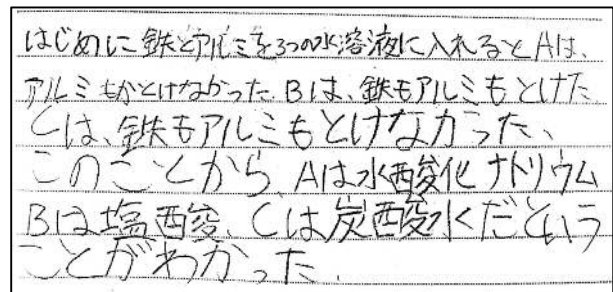 はじめに鉄とアルミを3つの水溶液に入れるとAは、
アルミしかとけなかった。Bは、鉄もアルミもとけた
Cは、鉄もアルミもとけなかった、
このことから、Aは水酸化ナトリウム
Bは塩酸、Cは炭酸水だという
ことがわかった、